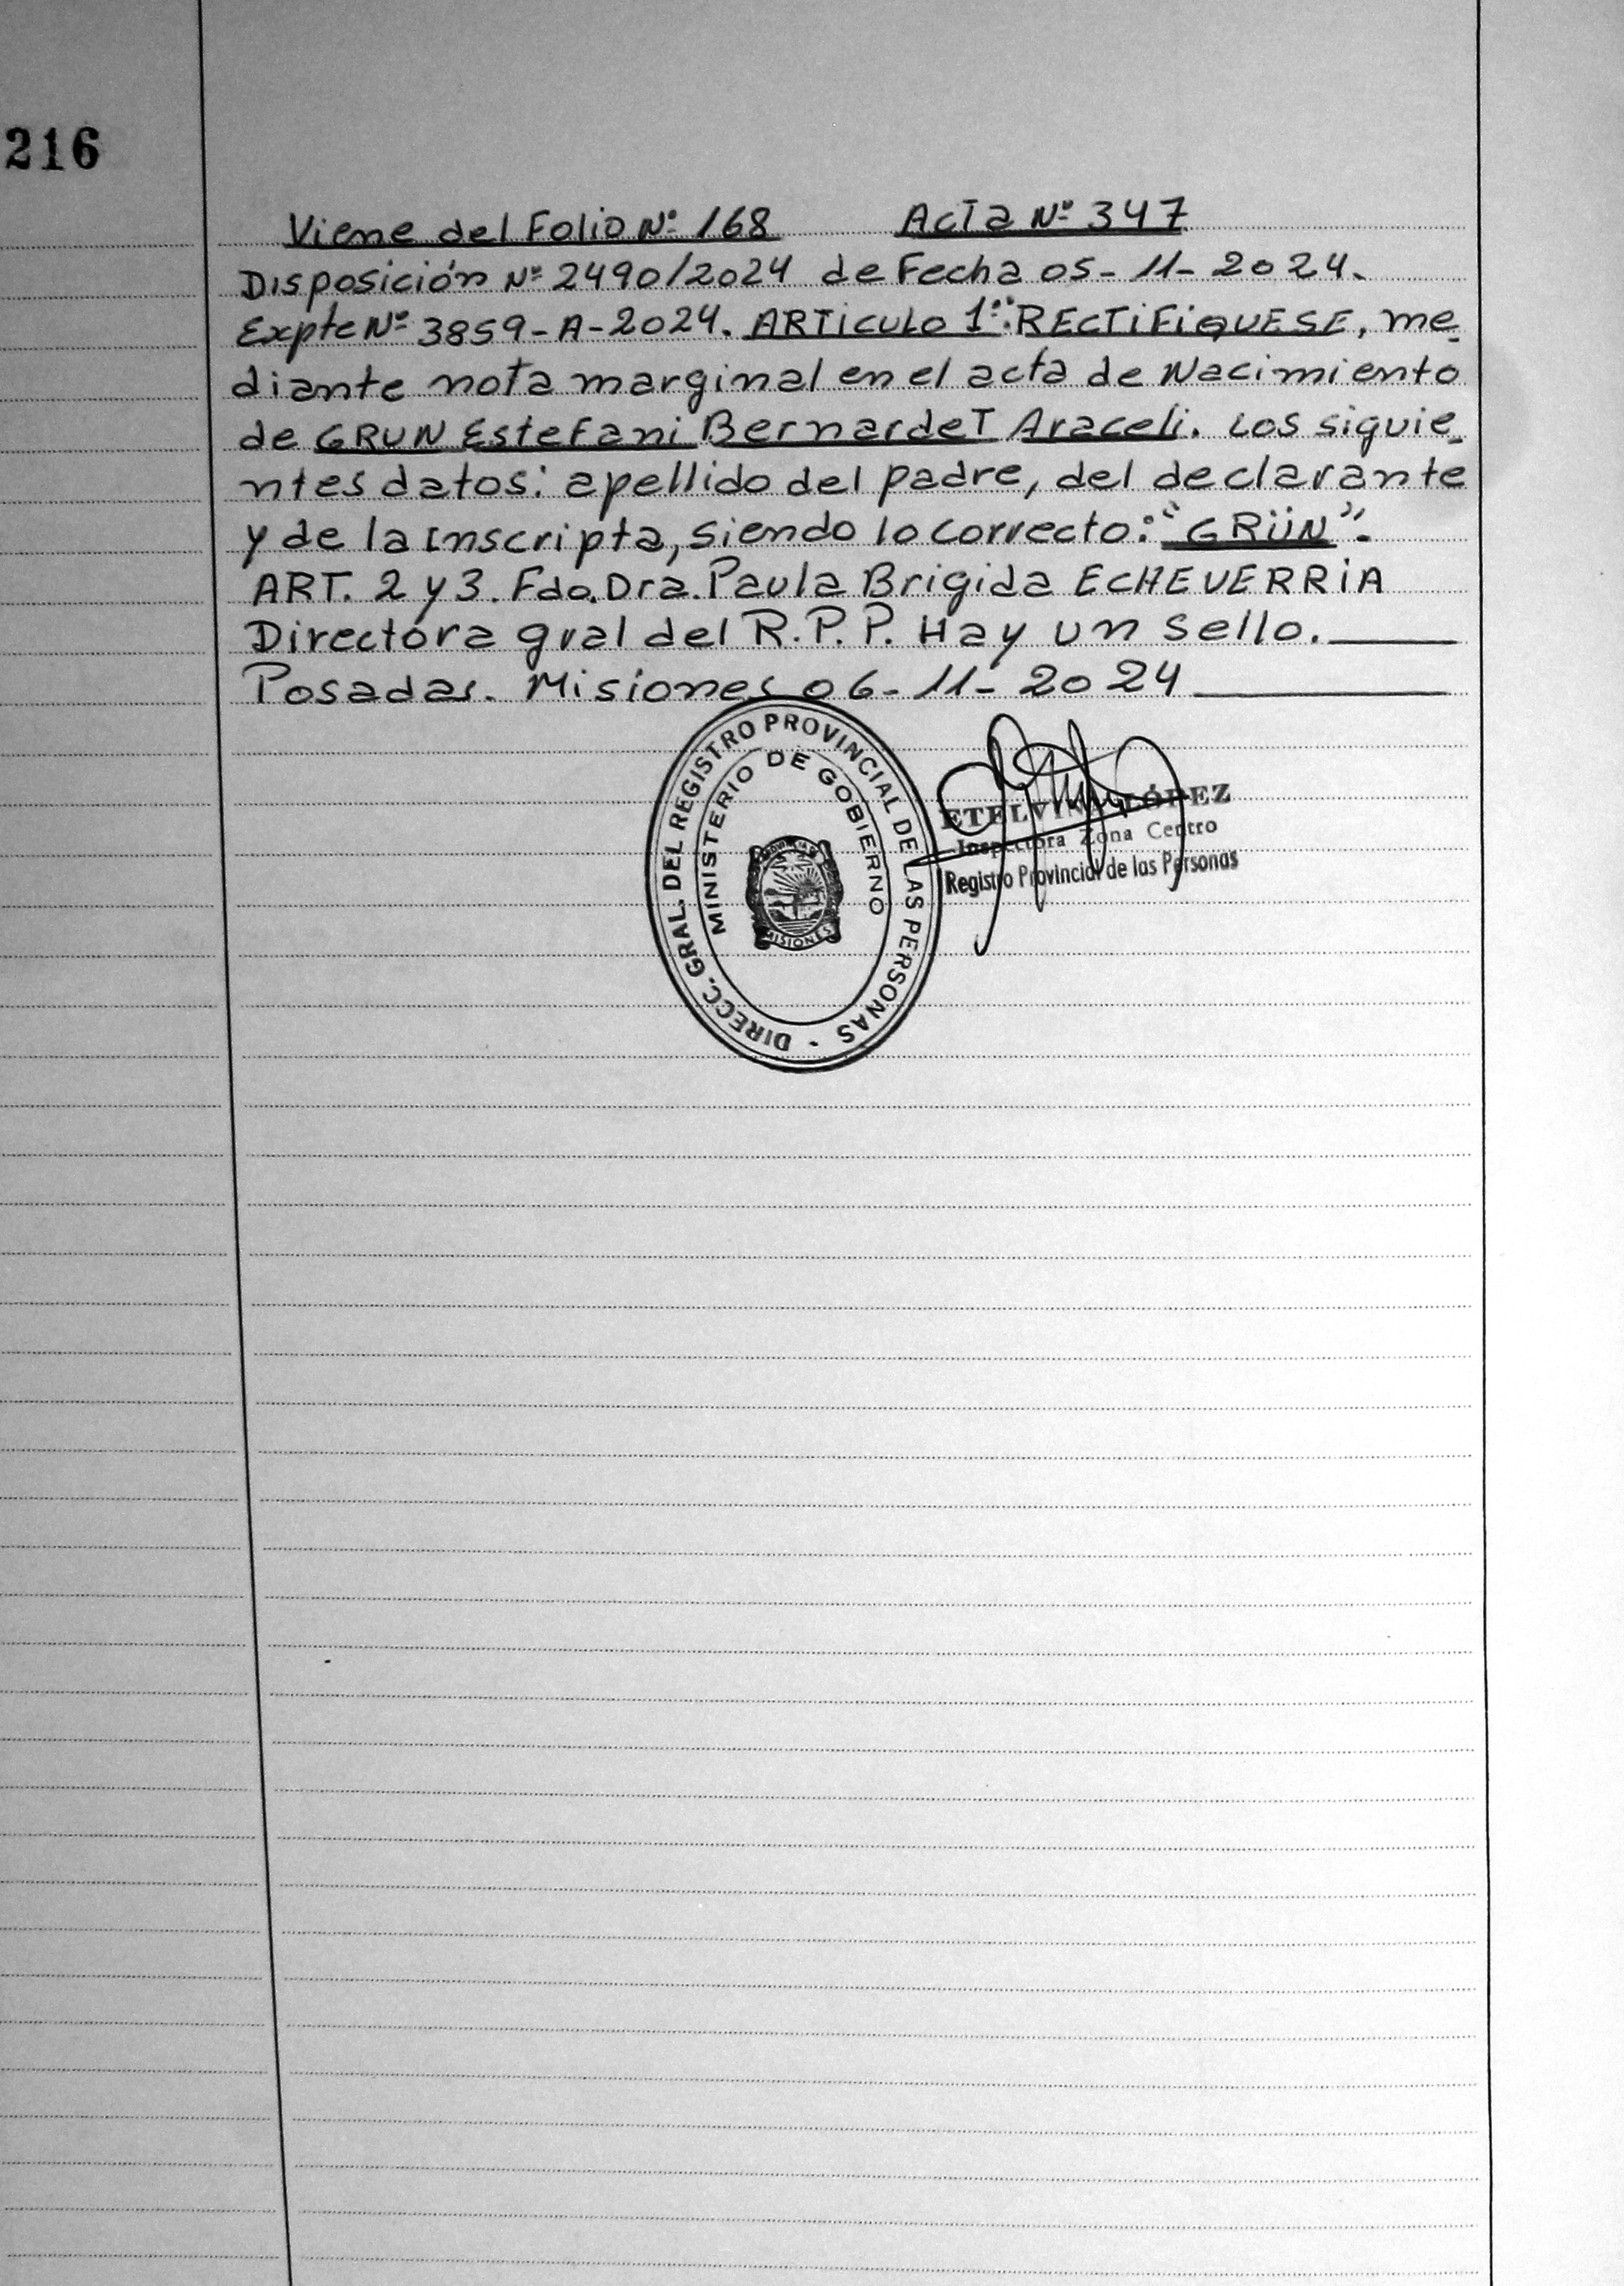 216
Viene del Folio Nº 168 Acta Nº 347
Disposición Nº 2490/2024 de Fecha 05-11-2024.
Expte Nº 3859-A-2024. ARTICULO 1º: RECTIFIQUESE, me-
diante nota marginal en el acta de Nacimiento
de GRUN Estefani Bernardet Araceli. Los siguie-
ntes datos: apellido del padre, del declarante
y de la inscripta, siendo lo correcto: "GRÜN".
ART. 2 y 3. Fdo. Dra. Paula Brigida ECHEVERRIA
Directora gral del R.P.P. Hay un sello.
Posadas. Misiones 06-11-2024
DIRECC. GRAL. DEL REGISTRO PROVINCIAL DE LAS PERSONAS -
MINISTERIO DE GOBIERNO
PROVINCIA DE
MISIONES
ETELVINA LÓPEZ
Inspectora Zona Centro
Registro Provincial de las Personas